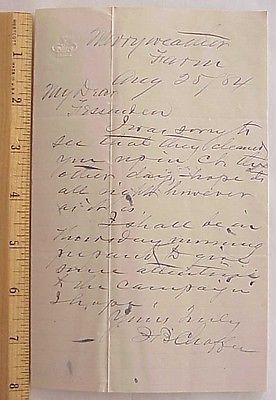 Merryweather
Farm
Aug 25/84
My Dear
Fessenden
I was sorry to
see that they cleaned
you up in Co. the
other day, hope its
all right however
as it is
I shall be in
Thursday morning
and give
some attention
to the campaign
I hope
Yours truly
1
2
3
4
5
6
7
8